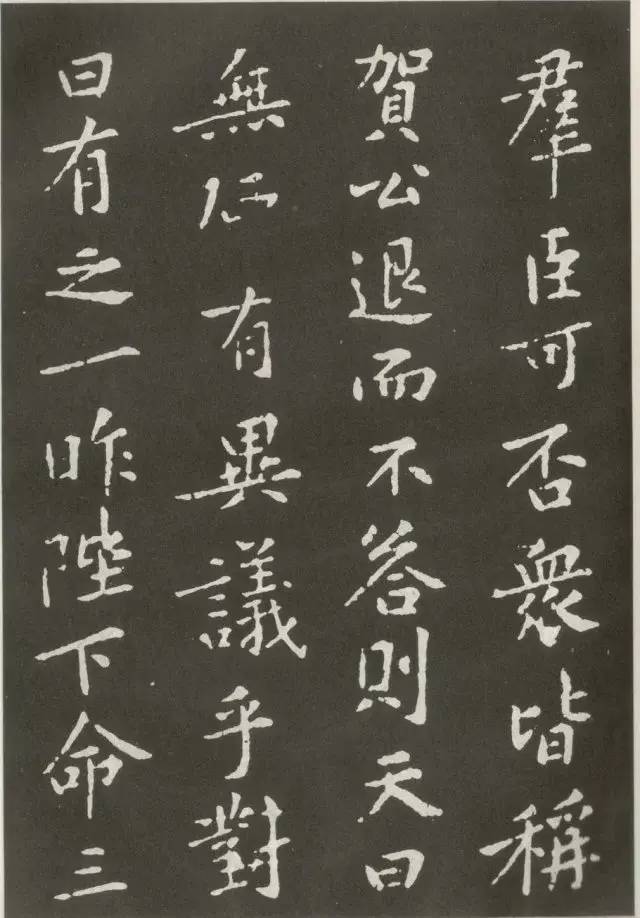 羣臣可否衆皆稱
賀公退而不答則天曰
無有異議乎對
曰有之一昨陛下命三